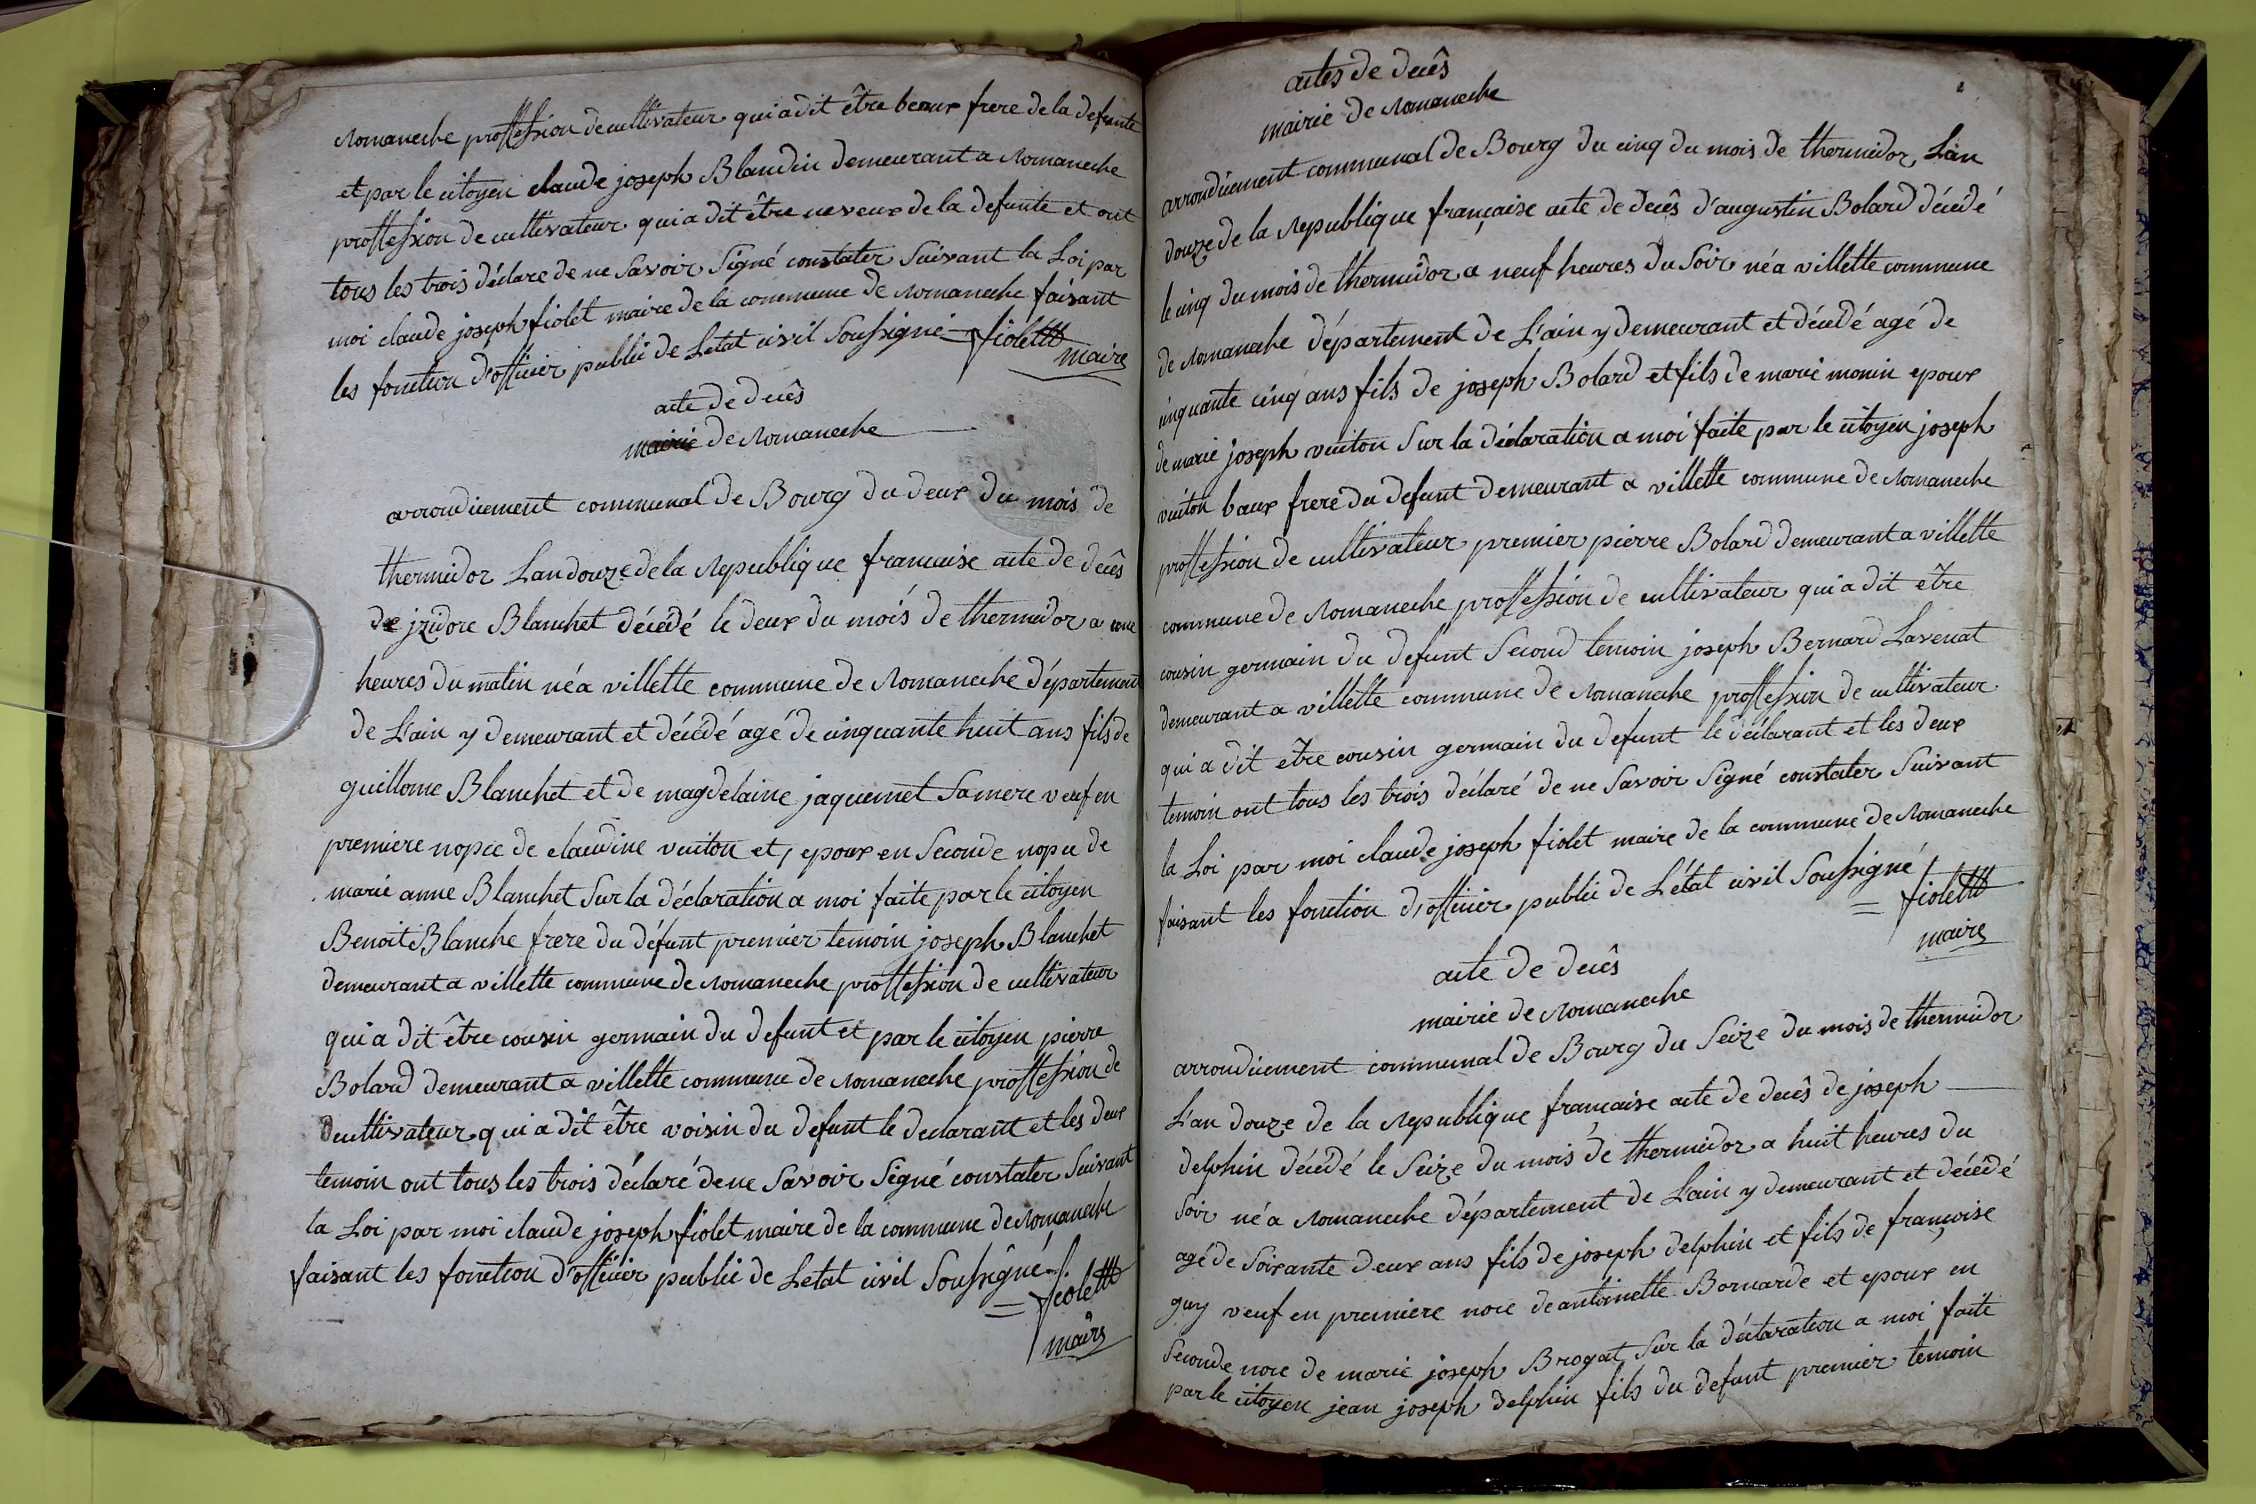 Romaneche proffession de cultivateur qui a dit être beaux frere de la defunte
et par le citoyen claude joseph Blandin demeurant a Romaneche
proffession de cultivateur qui a dit être neveux de la defunte et ont
tous les trois déclare de ne Savoir Signé constater Suivant la Loi par
moi claude joseph fiolet maire de la commune de Romaneche faisant
les fonction d'officier public de Letat civil Soussigné fiolet
maire
acte de decês
mairie de Romaneche
arrondicement communal de Bourg du deux du mois de
thermidor Lan douze de la Republique francaise acte de decês
de jzidore Blanchet décédé le deux du mois de thermidor a onze
heures du matin né a villette commune de Romaneche département
de L'ain y demeurant et décédé agé de cinquante huit ans fils de
guillome Blanchet et de magdelaine jaquemet Sa mere veuf en
premiere nopce de claudine vuiton et, epoux en Seconde nopce de
marie anne Blanchet Sur la déclaration a moi faite par le citoyen
Benoit Blanche frere du défunt premier temoin joseph Blanchet
demeurant a villette commune de Romaneche proffession de cultivateur
qui a dit être cousin germain du defunt et par le citoyen pierre
Bolard demeurant a villette commune de Romaneche proffession de
cultivateur qui a dit être voisin du defunt le declarant et les deux
temoin ont tous les trois déclaré de ne Savoir Signé constater Suivant
la Loi par moi claude joseph fiolet maire de la commune de Romaneche
faisant les fonction d'officier public de Letat civil Soussigné
= fiolet
maire
actes de decês
mairie de Romaneche
arrondicement communal de Bourg du cinq du mois de thermidor, L'an
douze de la Republique française acte de decês d'augustin Bolard décédé
le cinq du mois de thermidor a neuf heures du Soir né a villette commune
de Romaneche département de L'ain y demeurant et décédé agé de
cinquante cinq ans fils de joseph Bolard et fils de marie monin epoux
de marie joseph vuiton Sur la déclaration a moi faite par le citoyen joseph
vuiton baux frere du defunt demeurant a villette commune de Romaneche
proffession de cultivateur premier pierre Bolard demeurant a villette
commune de Romaneche proffession de cultivateur qui a dit être
cousin germain du defunt Second temoin joseph Bernard Lavenat
demeurant a villette commune de Romaneche proffession de cultivateur
qui a dit être cousin germain du defunt le déclarant et les deux
temoin ont tous les trois déclaré de ne Savoir Signé constater Suivant
la Loi par moi claude joseph fiolet maire de la commune de Romaneche
faisant les fonction d'officier public de L'état civil Soussigné
= fiolet
maire
acte de decês
mairie de Romaneche
arrondicement communal de Bourg du Seize du mois de thermidor
L'an douze de la Republique francaise acte de decês de joseph
delphin décédé le Seize du mois de thermidor a huit heures du
Soir né a Romaneche département de L'ain y demeurant et décédé
agé de Soixante deux ans fils de joseph delphin et fils de françoise
guy veuf en premiere noce de antoinette Bornarde et epoux en
Seconde noce de marie joseph Brogat Sur la déclaration a moi faite
par le citoyen jean joseph delphin fils du defunt premier temoin